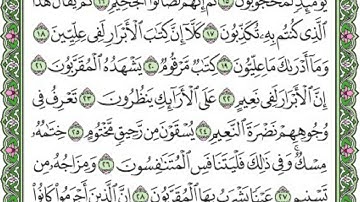 يَوْمَئِذٍ لَّمَحْجُوبُونَ ١٥ ثُمَّ إِنَّهُمْ لَصَالُوا۟ ٱلْجَحِيمِ ١٦ ثُمَّ يُقَالُ هَٰذَا
ٱلَّذِى كُنتُم بِهِۦ تُكَذِّبُونَ ١٧ كَلَّآ إِنَّ كِتَٰبَ ٱلْأَبْرَارِ لَفِى عِلِّيِّينَ ١٨
وَمَآ أَدْرَىٰكَ مَا عِلِّيُّونَ ١٩ كِتَٰبٌ مَّرْقُومٌ ٢٠ يَشْهَدُهُ ٱلْمُقَرَّبُونَ ٢١
إِنَّ ٱلْأَبْرَارَ لَفِى نَعِيمٍ ٢٢ عَلَى ٱلْأَرَآئِكِ يَنظُرُونَ ٢٣ تَعْرِفُ فِى
وُجُوهِهِمْ نَضْرَةَ ٱلنَّعِيمِ ٢٤ يُسْقَوْنَ مِن رَّحِيقٍ مَّخْتُومٍ ٢٥ خِتَٰمُهُۥ
مِسْكٌ ۚ وَفِى ذَٰلِكَ فَلْيَتَنَافَسِ ٱلْمُتَنَٰفِسُونَ ٢٦ وَمِزَاجُهُۥ مِن
تَسْنِيمٍ ٢٧ عَيْنًا يَشْرَبُ بِهَا ٱلْمُقَرَّبُونَ ٢٨ إِنَّ ٱلَّذِينَ أَجْرَمُوا۟ كَانُوا۟